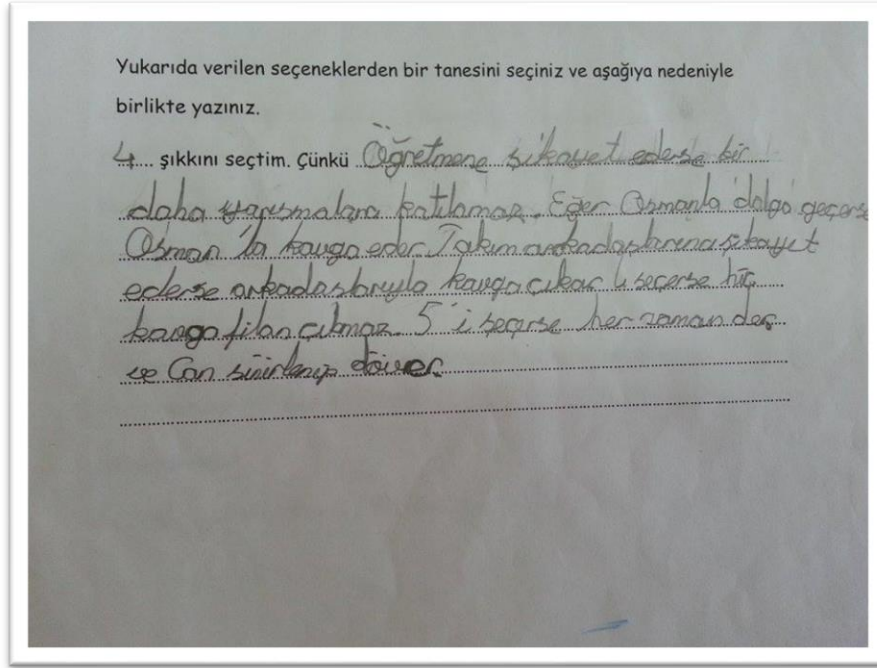 Yukarıda verilen seçeneklerden bir tanesini seçiniz ve aşağıya nedeniyle
birlikte yazınız.
4.... şıkkını seçtim. Çünkü Öğretmene şikayet ederse bir
daha yarışmalara katılamaz. Eğer Osmanla dalga geçerse
Osman'la kavga eder. Takım arkadaşlarına şikayet
ederse arkadaşlarıyla kavga çıkar 4 seçerse hiç
kavga filan çıkmaz. 5'i seçerse her zaman der
ve Can sinirlenip döver.